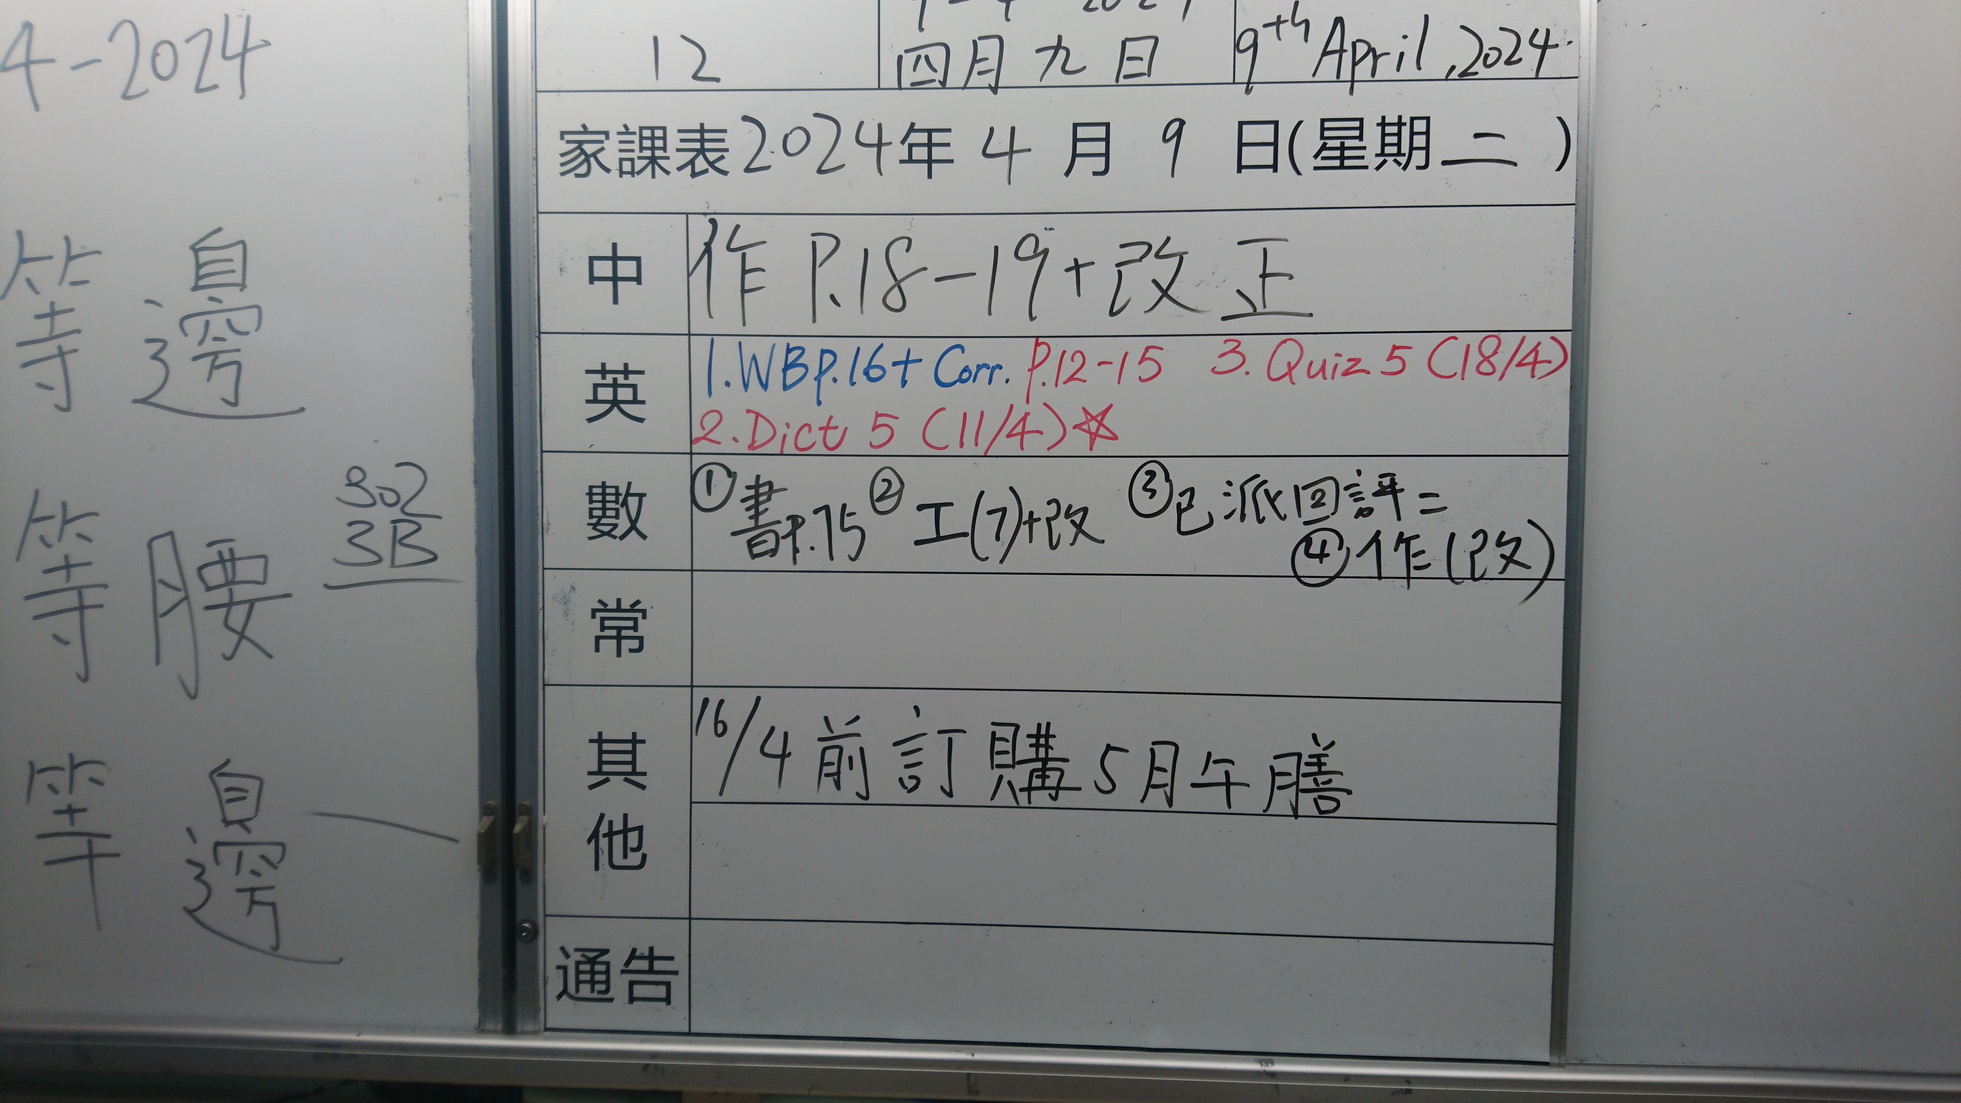 4-2024
等邊
等腰
302
3B
等邊
12
四月九日
9th April, 2024.
家課表2024年4月9日(星期二)
中
作P.18-19+改正
英
1.WBP.16+Corr. P.12-15 3. Quiz 5 (18/4)
2.Dict 5 (11/4)☆
數
①書P.75 ②工(7)+改 ③已派回評二
④作(改)
常
其他
16/4前訂購5月午膳
通告